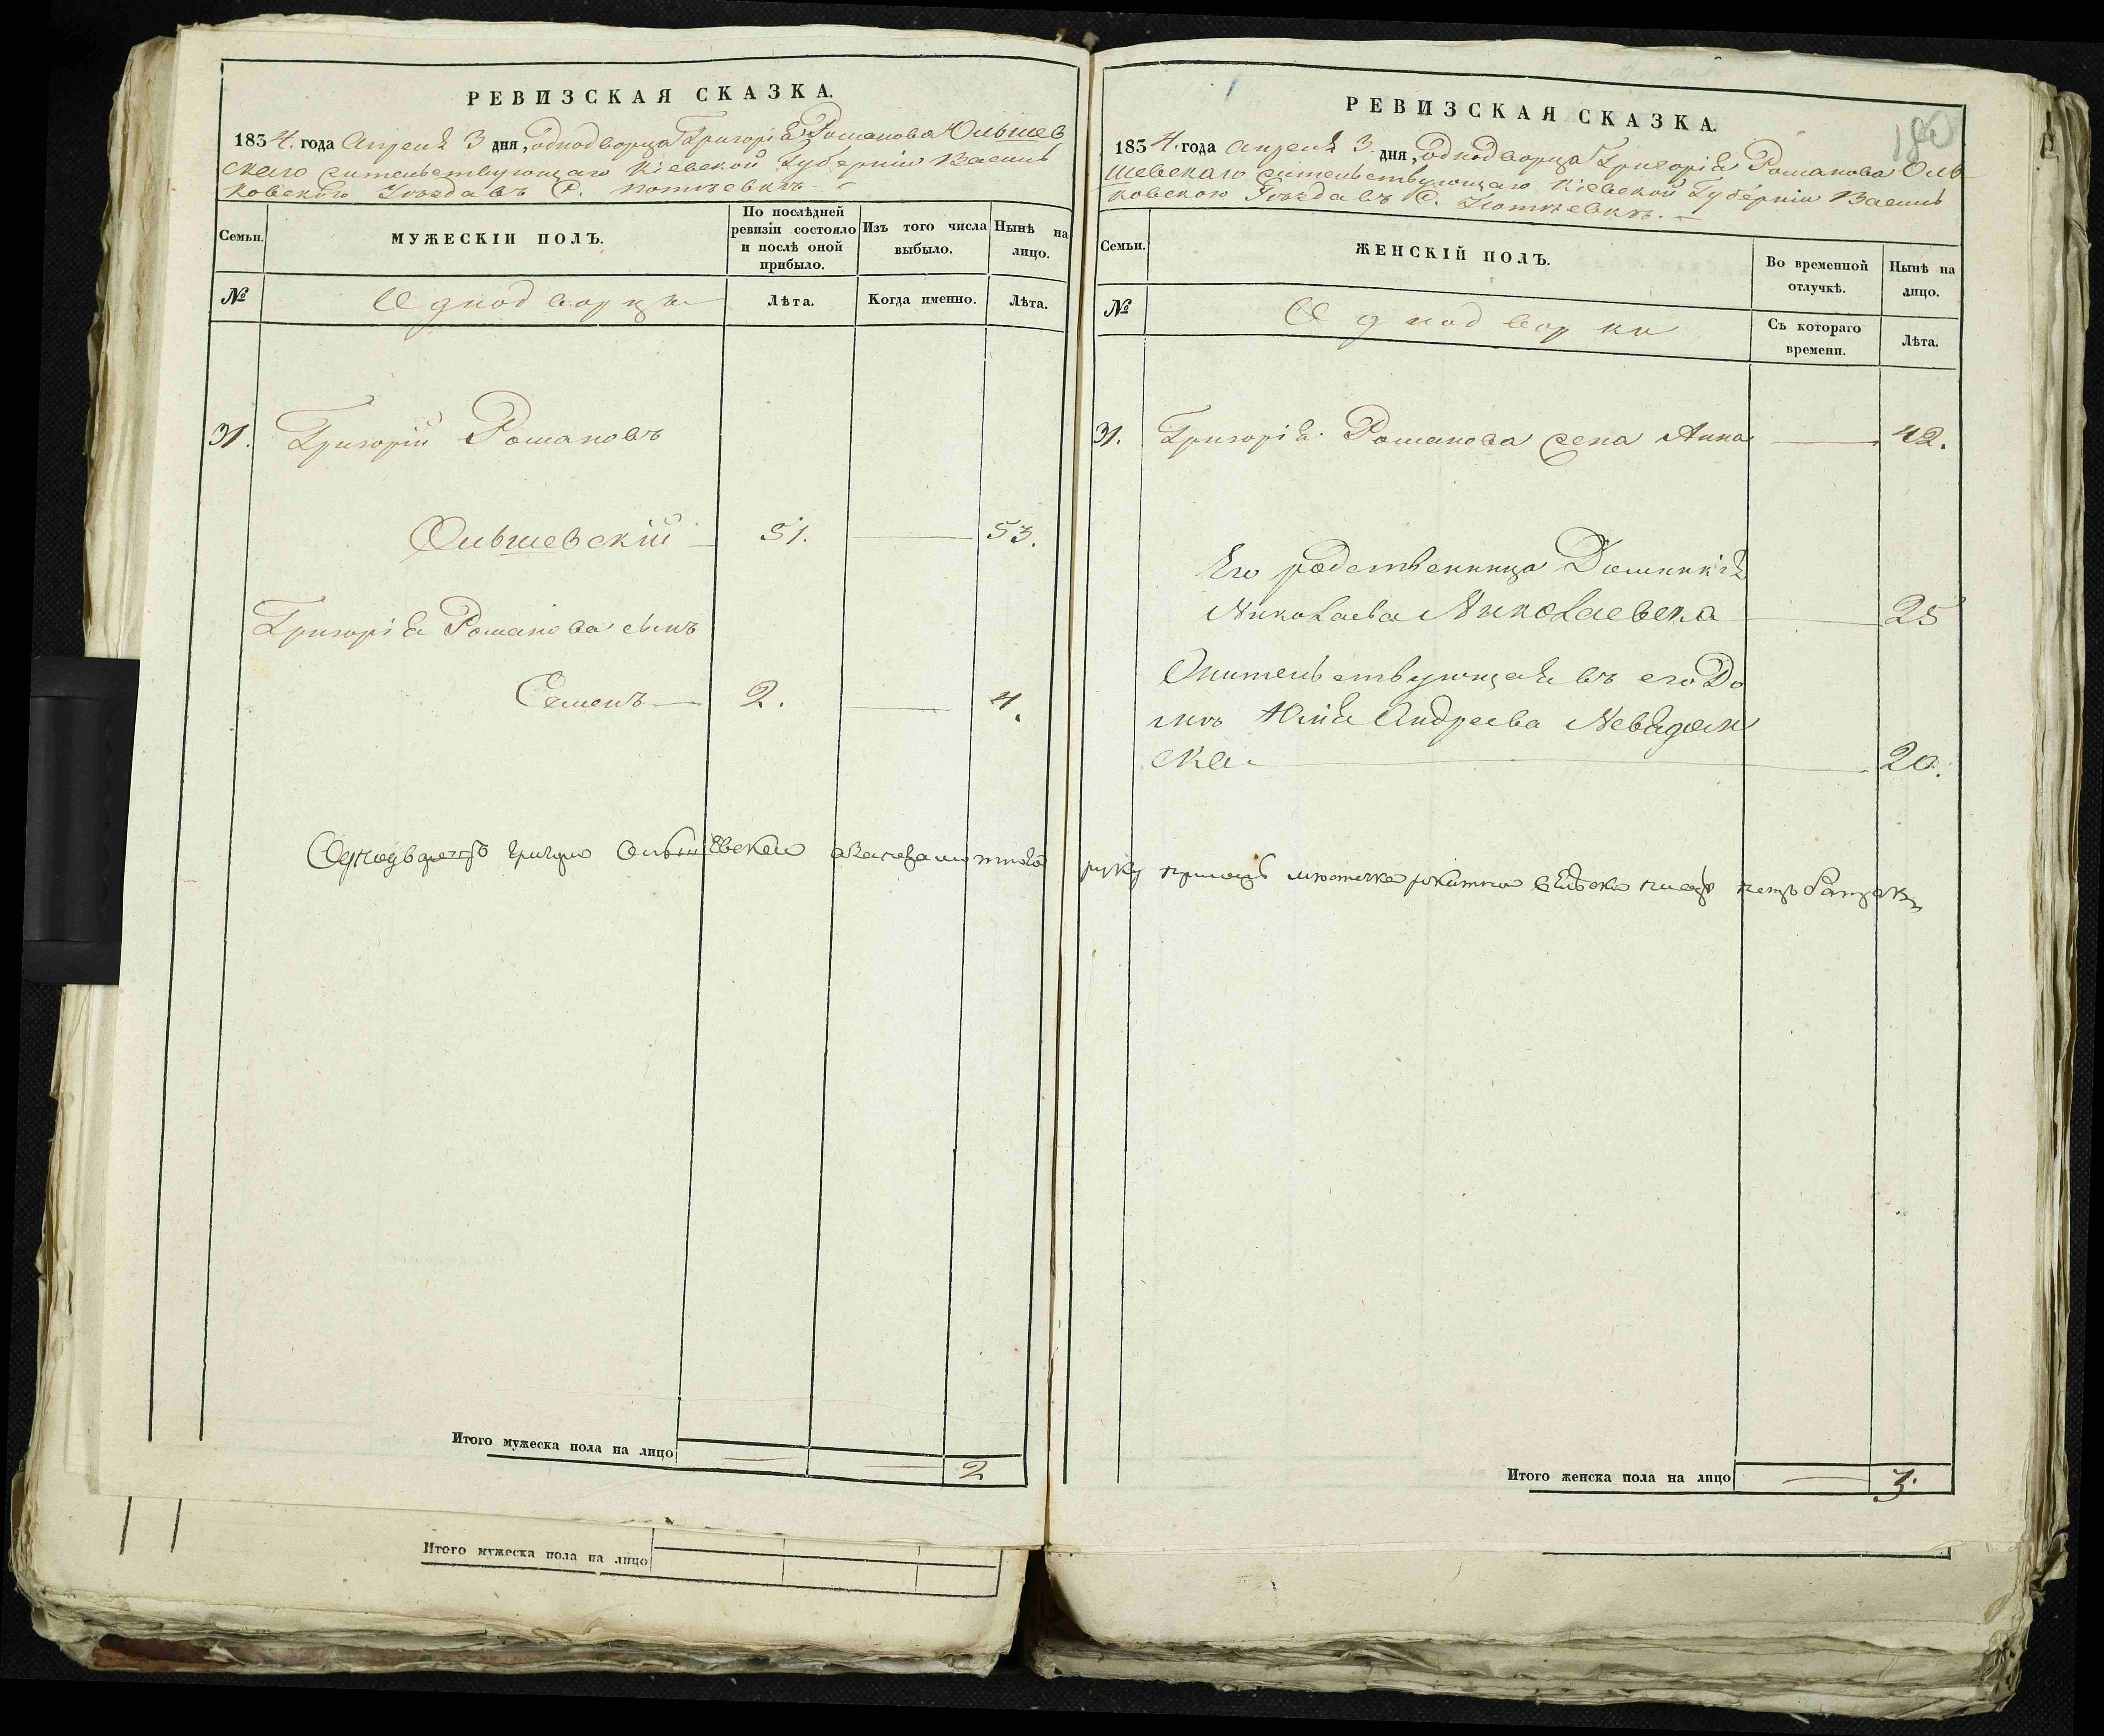 РЕВИЗСКАЯ СКАЗКА.
1834. года Апреля 3 дня, однодворца Григорія Романова Ольшев
скаго жительствующаго Кіевской Губерніи Василь
ковскаго Уѣзда въ С. Потіевкѣ.
Семьи.
МУЖЕСКІЙ ПОЛЪ.
По послѣдней ревизіи состояло и послѣ оной прибыло.
Изъ того числа выбыло.
Нынѣ на лицо.
№
Однодворцы
Лѣта.
Когда именно.
Лѣта.
31. Григорій Романовъ
Ольшевскій 51. 53.
Григорія Романова сынъ
Семенъ 2. 4.
Григори
Итого мужеска пола на лицо 2
Итого мужеска пола на лицо
180
РЕВИЗСКАЯ СКАЗКА.
1834. года Апреля 3. дня, Однодворца Григорія Романова Оль
шевскаго жительствующаго Кіевской Губерніи Василь
ковского Уѣзда въ С. Потіевкѣ.
Семьи.
ЖЕНСКІЙ ПОЛЪ.
Во временной отлучкѣ.
Нынѣ на лицо.
№
Однодворки
Съ котораго времени.
Лѣта.
31. Григорія Романова жена Анна 42.
Его родственница Доминикія
Николаева Николаевска 25
Жительствующая въ его До
мѣ Юлія Андреева
ска 20.
руку
Итого женска пола на лицо 3.